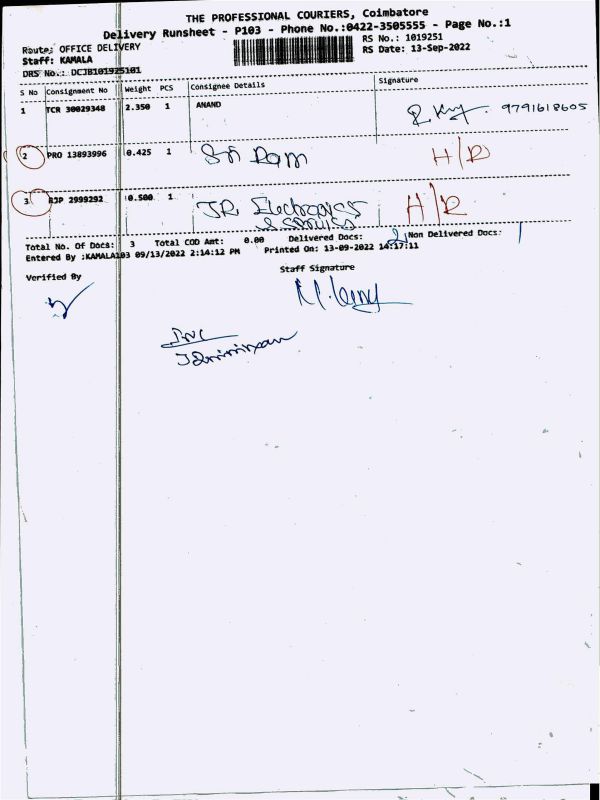 THE PROFESSIONAL COURIERS, Coimbatore
Delivery Runsheet - P103 - Phone No.:0422-3505555 - Page No.:1
Route: OFFICE DELIVERY
RS No.: 1019251
Staff: KAMALA
RS Date: 13-Sep-2022
DRS No.: DCJB101925101
S No Consignment No Weight PCS Consignee Details Signature
1 TCR 30029348 2.350 1 ANAND 9791618605
2 PRO 13893996 0.425 1 Sri Ram H/R
3 RJP 2999292 0.500 1 JR Electronics H/R
& services
Total No. Of Docs: 3 Total COD Amt: 0.00 Delivered Docs: 2 Non Delivered Docs: 1
Entered By :KAMALA103 09/13/2022 2:14:12 PM Printed On: 13-09-2022 14:17:11
Verified By Staff Signature